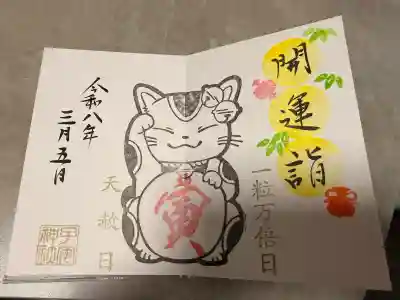 開運詣
一粒万倍日
寅
天赦日
令和八年
三月五日
神社